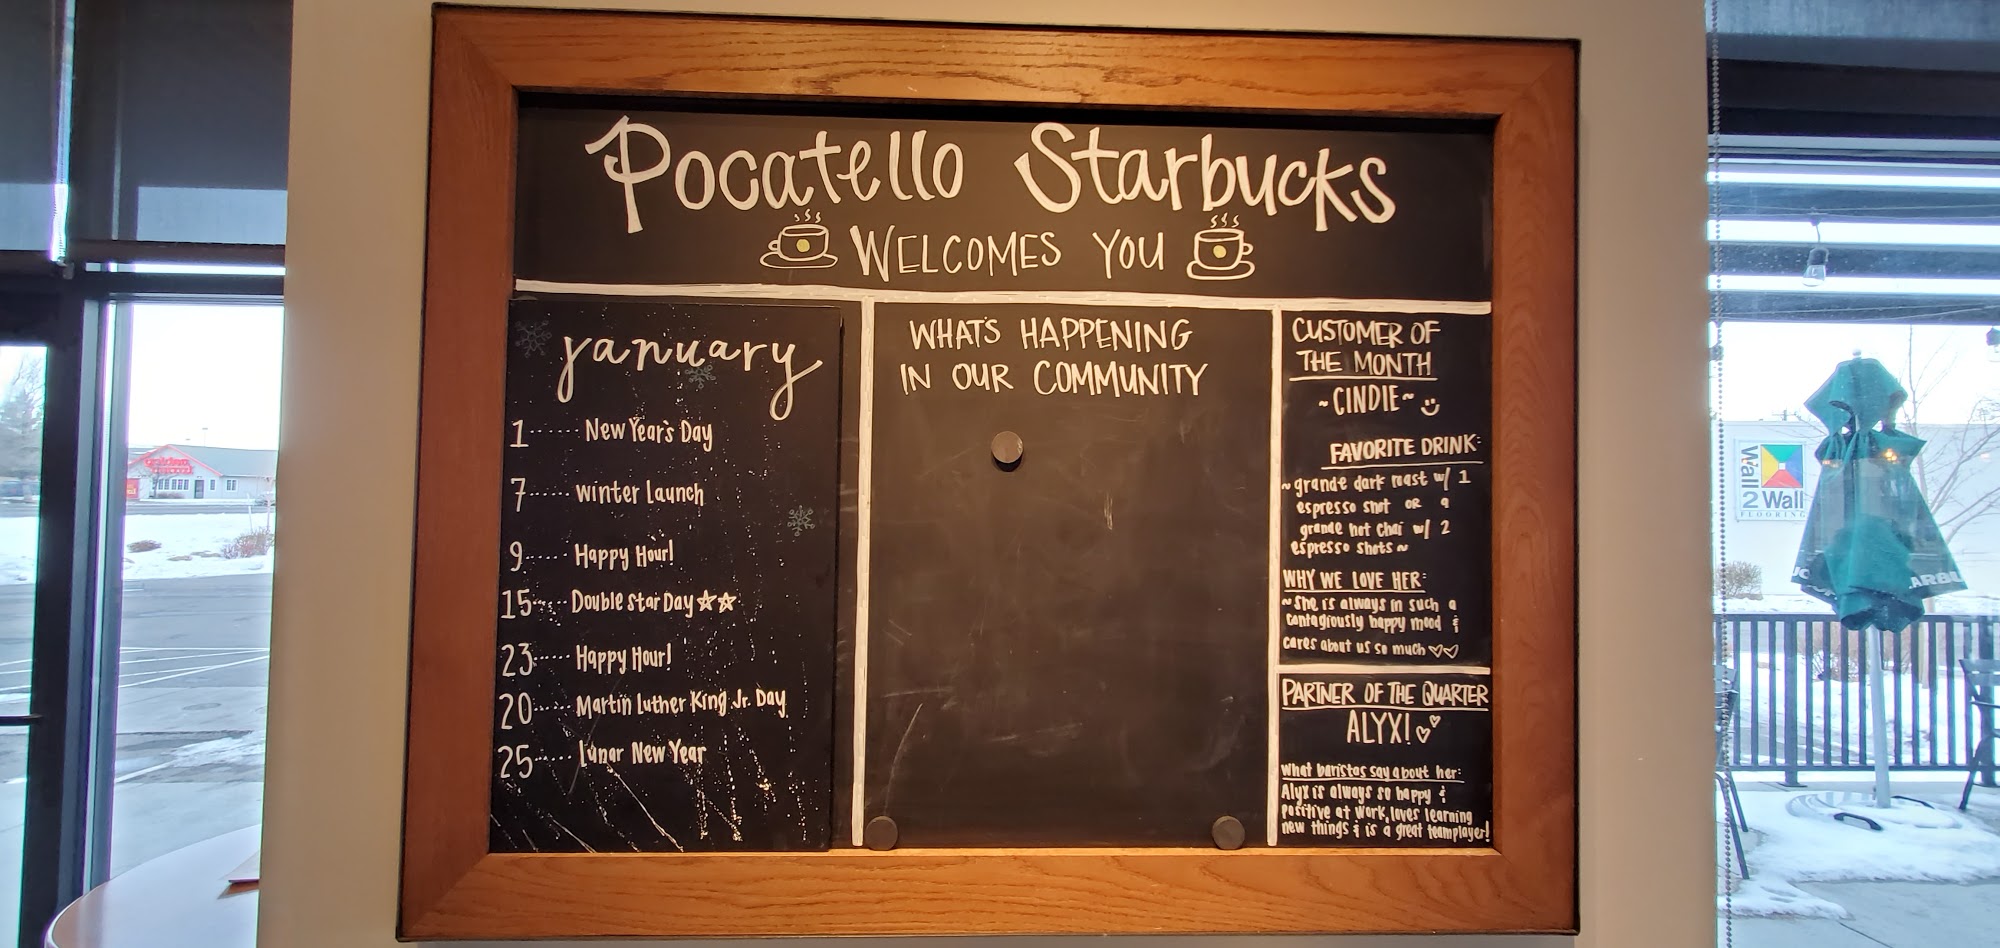 Pocatello Starbucks
WELCOMES YOU
january
1....... New Year's Day
7...... winter Launch
9...... Happy Hour!
15...... Double Star Day ☆☆
23...... Happy Hour!
20...... Martin Luther King Jr. Day
25...... Lunar New Year
WHAT'S HAPPENING
IN OUR COMMUNITY
CUSTOMER OF
THE MONTH
~CINDIE~
FAVORITE DRINK:
~grande dark roast w/ 1
espresso shot OR a
grande hot chai w/ 2
espresso shots~
WHY WE LOVE HER:
~She is always in such a
contagiously happy mood &
cares about us so much ♡♡
PARTNER OF THE QUARTER
ALYX!
what baristas say about her:
Alyx is always so happy &
positive at work, loves learning
new things & is a great teamplayer!
golden
corral
Wall
2 Wall
FLOORING